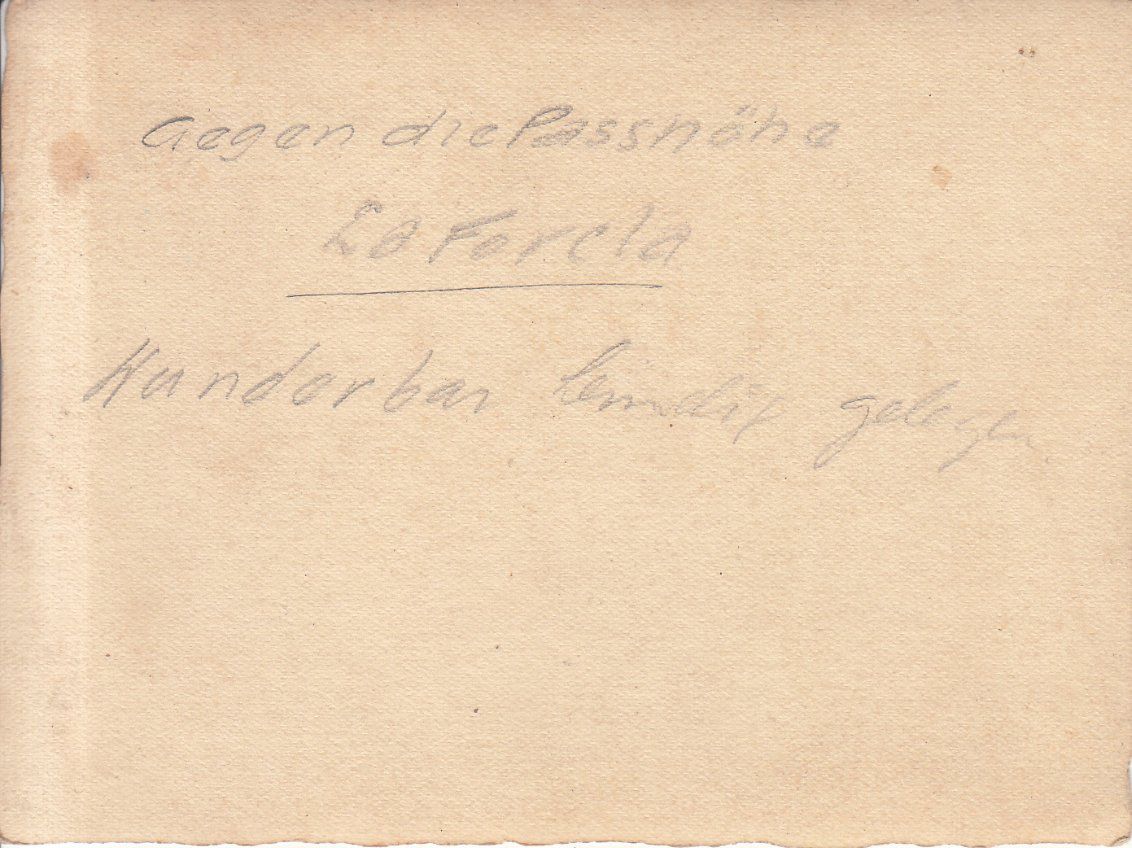 Gegen die Passhöhe
La Forcla
Wunderbar gelegen